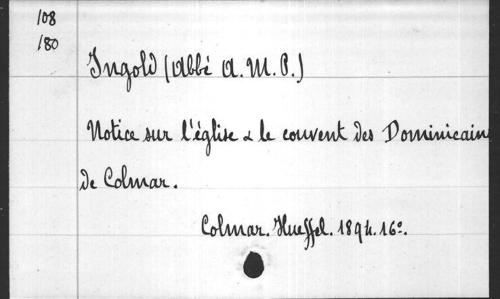 108
180
Ingold (Abbé A. M. P.)
Notice sur l'église & le couvent des Dominicains
de Colmar.
Colmar. Hueffel. 1894. 16º.